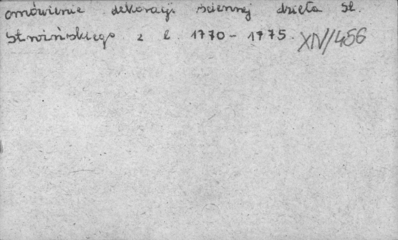 omówienie dekoracji ściennej dzieła St.
Stroińskiego z l. 1770-1775. XIV/456